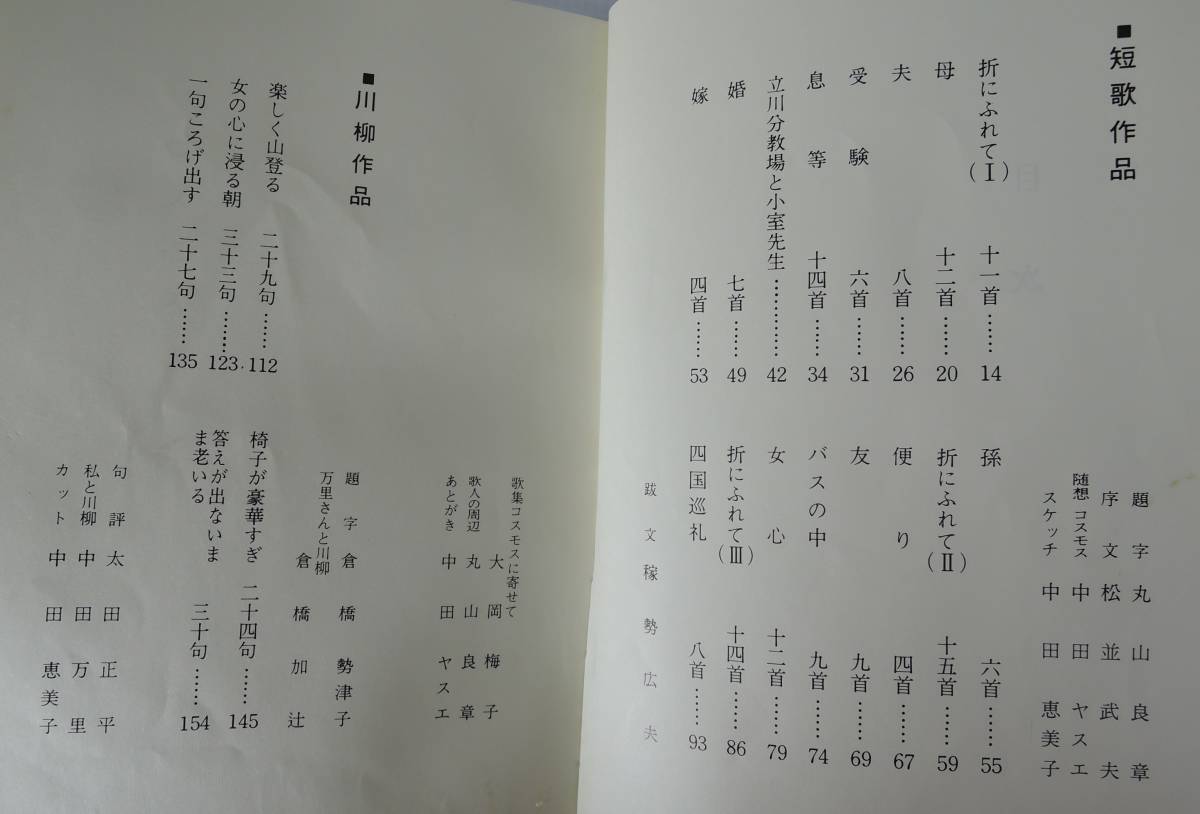 ■短歌作品
題字 丸山良章
序文 松並武夫
随想 コスモス 中田ヤスエ
スケッチ 中田恵美子
折にふれて(Ⅰ) 十一首……14
母 十二首……20
夫 八首……26
受験 六首……31
息等 十四首……34
立川分教場と小室先生……………42
婚 七首……49
嫁 四首……53
孫 六首……55
折にふれて(Ⅱ) 十五首……59
便り 四首……67
友 九首……69
バスの中 九首……74
女心 十二首……79
折にふれて(Ⅲ) 十四首……86
四国巡礼 八首……93
跋文 稼勢広夫
歌集コスモスに寄せて
大岡梅子
歌人の周辺 丸山良章
あとがき 中田ヤスエ
■川柳作品
題字 倉橋勢津子
万里さんと川柳
倉橋加辻
楽しく山登る 二十九句……112
女の心に浸る朝 三十三句……123
一句ころげ出す 二十七句……135
椅子が豪華すぎ 二十四句……145
答えが出ないいま
ま老いる 三十句……154
句評 太田正平
私と川柳 中田万里
カット 中田恵美子